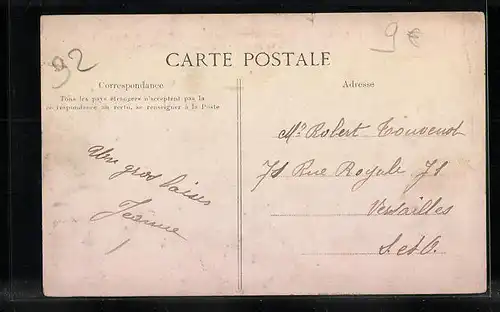 92
9
CARTE POSTALE
Correspondance
Tous les pays étrangers n'acceptant pas la
correspondance au verso, se renseigner à la Poste
Adresse
Un gros baiser
Jeanne
Mr Robert Thouvenot
71 Rue Royale 71
Versailles
S. et O.